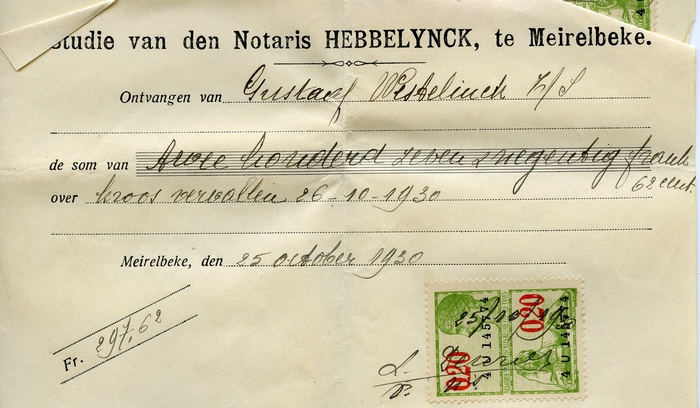 Studie van den Notaris HEBBELYNCK, te Meirelbeke.
Ontvangen van Gustaaf Westelinck Z/S
de som van Twee honderd zeven & negentig frank
62 cent.
over kroos vervallen 26-10-1930
Meirelbeke, den 25 october 1930
Fr. 297,62
25/10/1930
0.20
0.20
4 U 14574
4 U 14574